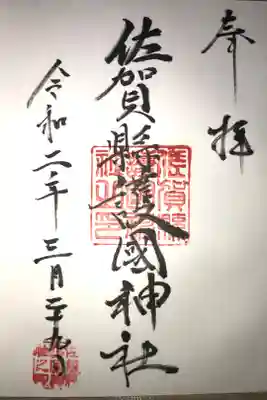 奉拝
佐賀縣護國神社
令和二年三月二十九日
佐賀縣